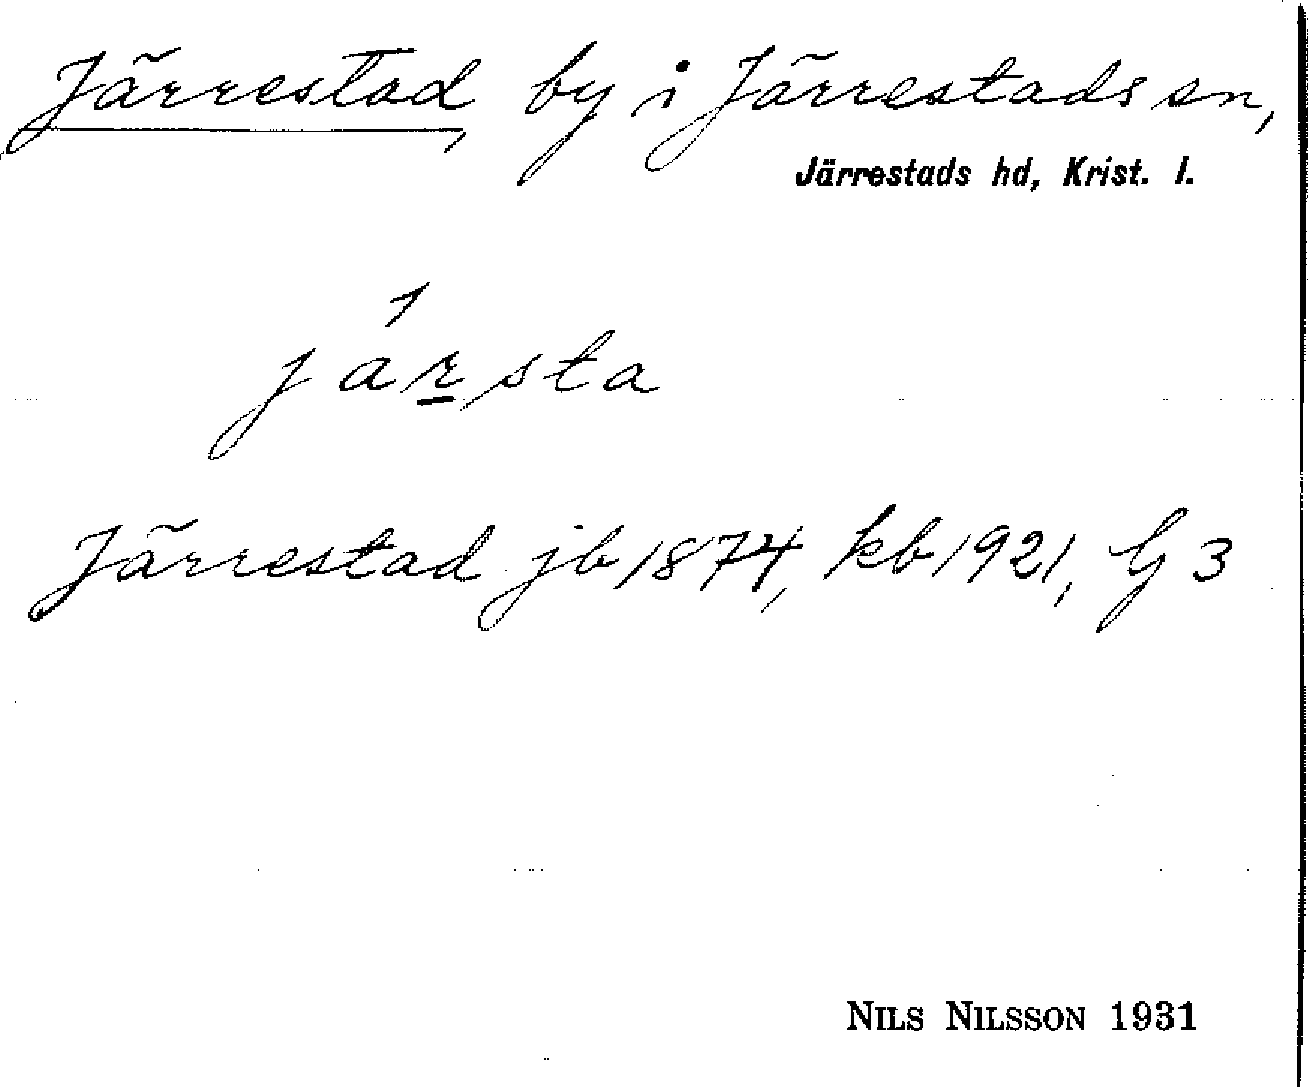 Järrestad, by i Järrestads sn,
Järrestads hd, Krist. l.
jársta
Järrestad jb 1874, kb 1921, G 3
NILS NILSSON 1931